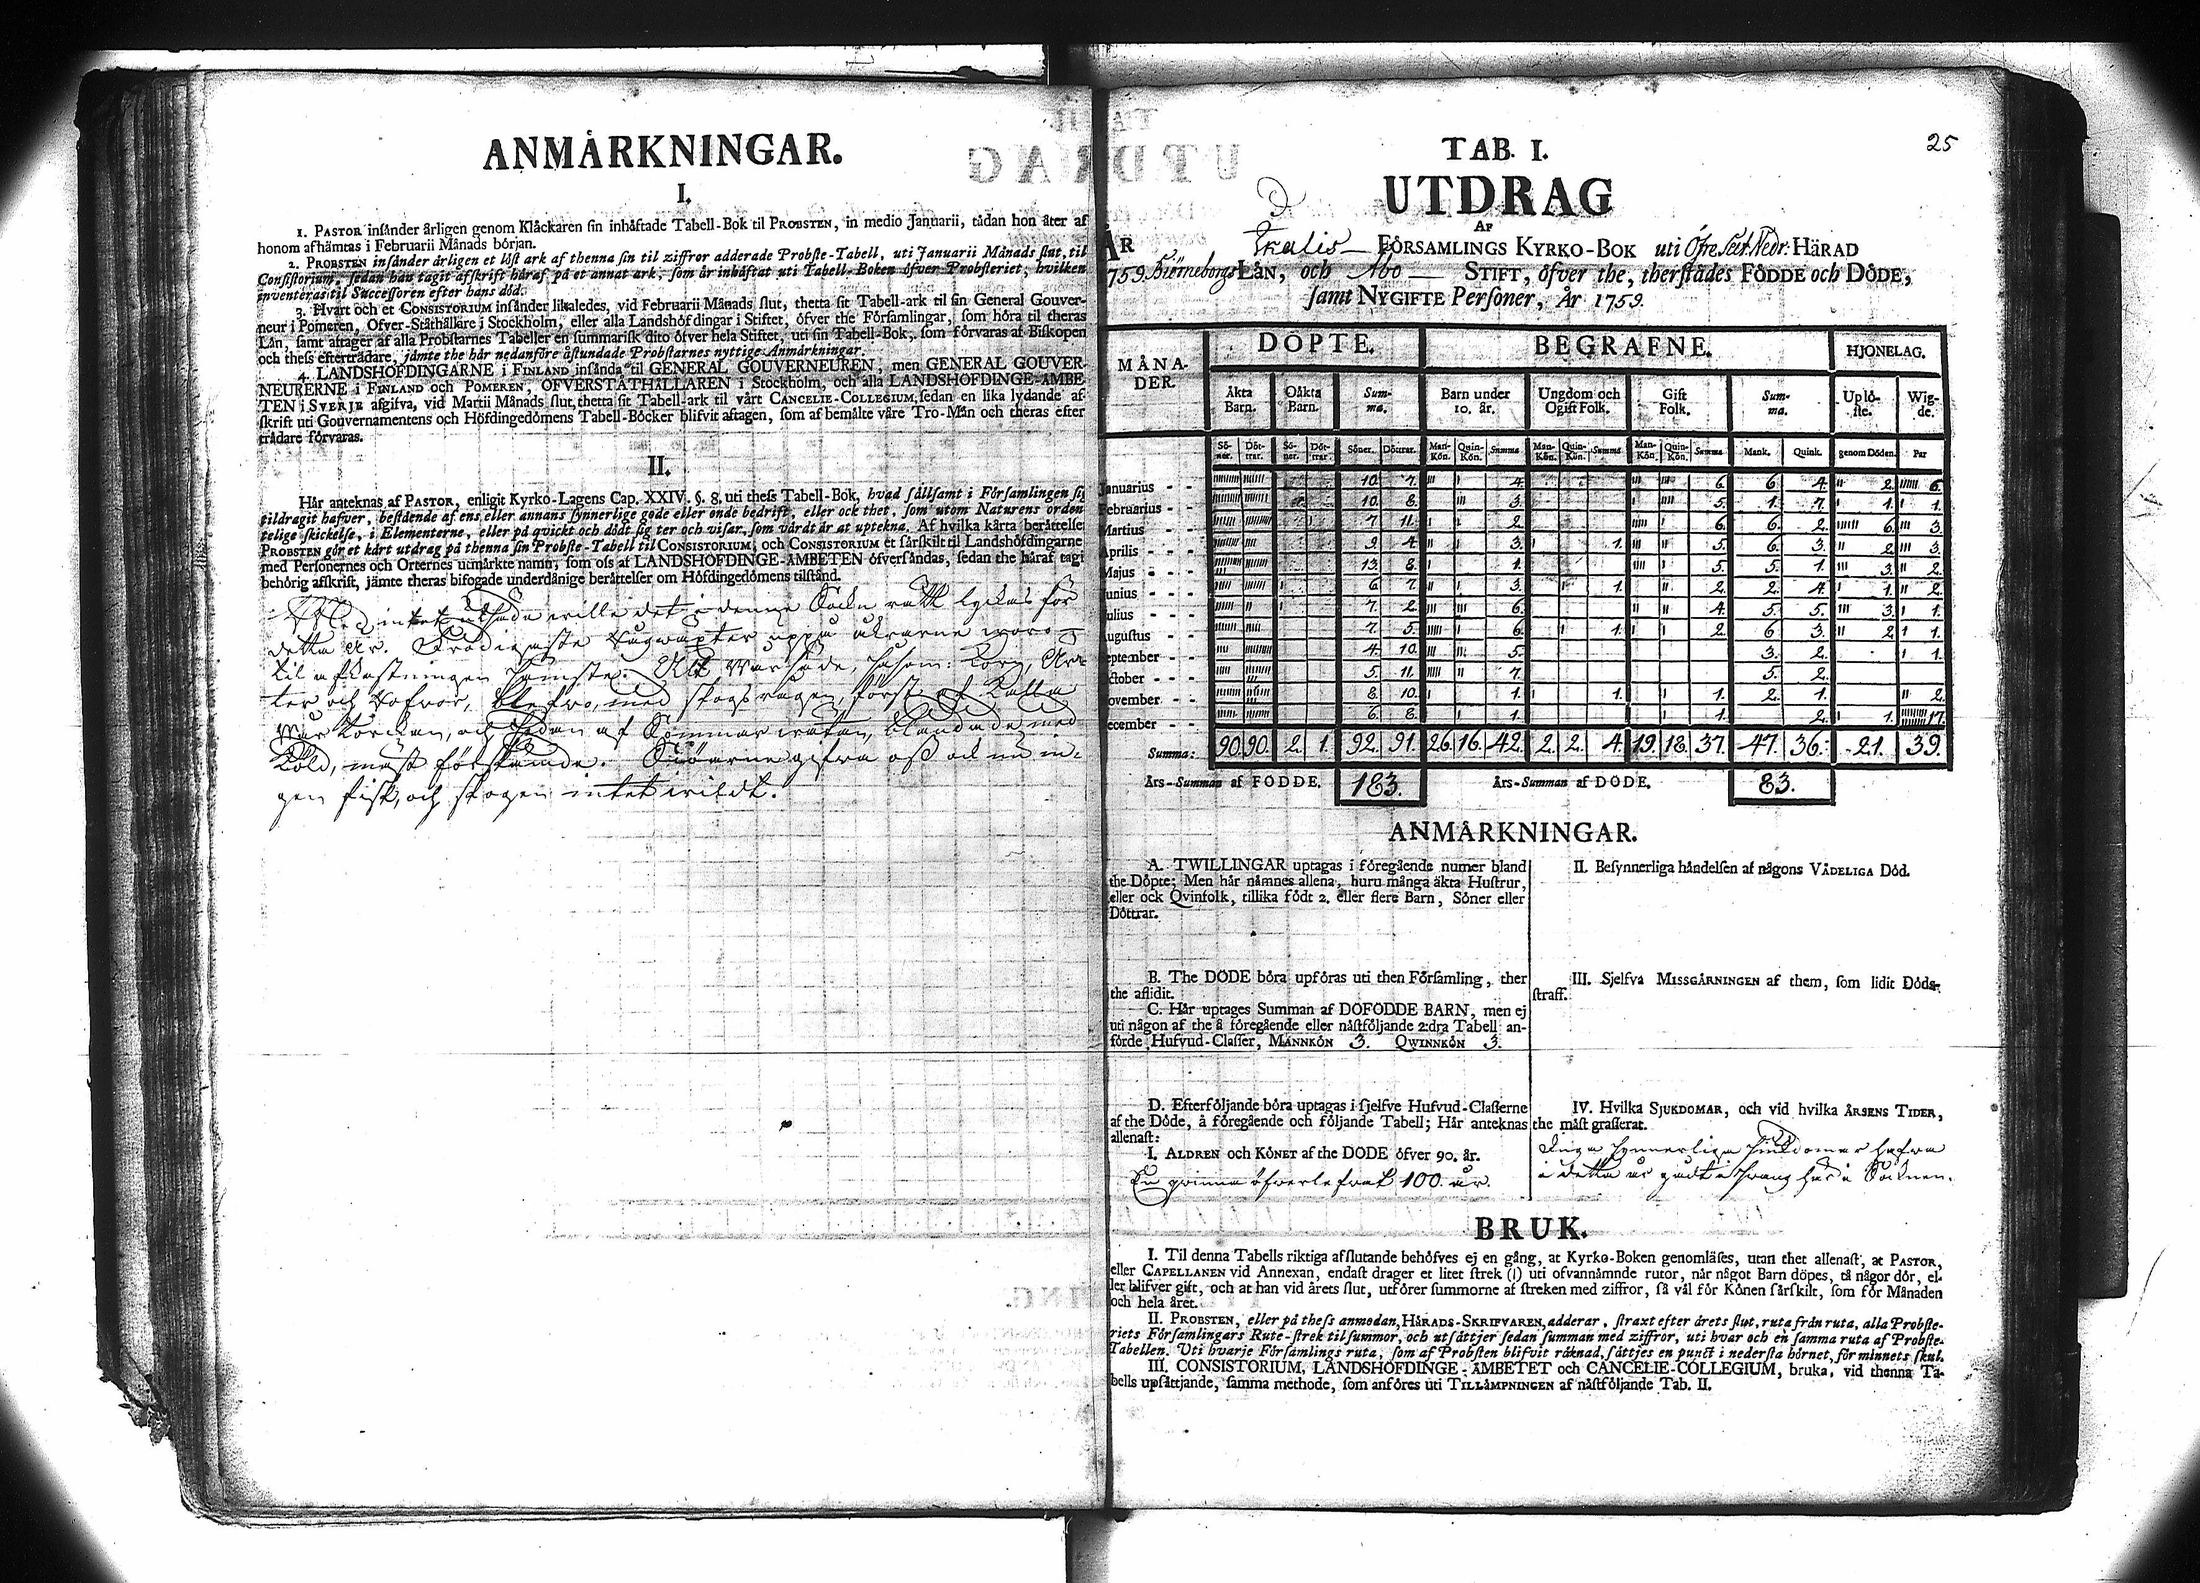 ANMÅRKNINGAR.
I.
1. PASTOR insånder årligen genom Klåckaren sin inhåftade Tabell-Bok til PROBSTEN, in medio Januarii, tådan hon åter af
honom afhåmtas i Februarii Månads början.
2. PROBSTEN insånder årligen et löst ark af thenna sin til ziffror adderade Probste-Tabell, uti Januarii Månads slut, til
Consistorium, sedan han tagit afskrift håraf, på et annat ark, som år inhåftat uti Tabell-Boken öfver Probsteriet, hvilken
inventeras til Successoren efter hans död.
3. Hvart och et CONSISTORIUM insånder likaledes, vid Februarii Månads slut, thetta sit Tabell-ark til sin General Gouver-
neur i Pomeren, Öfver-Ståthållare i Stockholm, eller alla Landshöfdingar i Stiftet, öfver the Församlingar, som höra til theras
Lån, samt aftager af alla Probstarnes Tabeller en summarisk dito öfver hela Stiftet, uti sin Tabell-Bok, som förvaras af Biskopen
och thess eftertrådare, jåmte the hår nedanföre åstundade Probstarnes nyttige Anmårkningar.
4. LANDSHÖFDINGARNE i FINLAND insånda til GENERAL GOUVERNEUREN, men GENERAL GOUVER-
NEURERNE i FINLAND och POMEREN, ÖFVERSTÅTHÅLLAREN i Stockholm, och alla LANDSHÖFDINGE-ÅMBE-
TEN i SVERJE afgifva, vid Martii Månads slut, thetta sit Tabell-ark til vårt CANCELIE-COLLEGIUM, sedan en lika lydande af-
skrift uti Gouvernamentens och Höfdingedömens Tabell-Böcker blifvit aftagen, som af bemålte våre Tro-Mån och theras efter
trådare förvaras.
II.
Hår anteknas af PASTOR, enligit Kyrko-Lagens Cap. XXIV. §. 8. uti thess Tabell-Bok, hvad sållsamt i Församlingen sig
tildragit hafver, bestående af ens eller annans synnerlige gode eller onde bedrift, eller ock thet, som utom Naturens orden
telige skickelse, i Elementerne, eller på qvickt och dödt sig ter och visar, som vårdt år at uptekna. Af hvilka kårta beråttelser
PROBSTEN gör et kårt utdrag på thenna sin Probste-Tabell til CONSISTORIUM, och CONSISTORIUM et sårskilt til Landshöfdingarne
med Personernes och Orternes utmårkte namn, som oss af LANDSHÖFDINGE-ÅMBETEN öfversåndas, sedan the håraf tagi
behörig afskrift, jåmte theras bifogade underdånige beråttelser om Höfdingedömens tilstånd.
Med intet utsäde wille det i denne Sockn rätt lyckas för
detta år. Trädigaste Rugwäxter uppå åkrarne woro
til afkastningen
ter och Hafror, blefwo, med skogsrågen, först af kalla
wår torckan, och sedan af Sommar wätan, blandade med
köld, mäst förskämde. Siöarne gifwa oss ock nu in-
gen fisk, och skogen intet wildt.
25
TAB. I.
UTDRAG
AF
ÅR Ikalis FÖRSAMLINGS KYRKO-BOK uti Öfre Sat: Nedr: HÄRAD
1759. Biörneborgs LÅN, och Åbo STIFT, öfver the, therstådes FÖDDE och DÖDE,
samt NYGIFTE Personer, År 1759.
MÅNA-DER. DÖPTE. BEGRAFNE. HJONELAG.
Åkta Barn. Oåkta Barn. Sum-ma. Barn under 10. år. Ungdom och Ogift Folk. Gift Folk. Sum-ma. Uplö-ste. Wig-de.
Sö-ner. Döt-trar. Sö-ner. Döt-trar Söner. Döttrar. Man-Kön. Quin-Kön. Summa Man-Kön. Quin-Kön. Summa Man-Kön. Quin-Kön. Summa Mank. Quink. genom Döden. Par
Januarius - - 10. 7. 4. 6. 6. 4. 2. 6.
Februarius - - 10. 8. 3. 5. 1. 7. 1. 1.
Martius - - 7. 11. 2. 6. 6. 2. 6. 3.
Aprilis - - 9. 4. 3. 1. 5. 6. 3. 2. 3.
Majus - - 13. 8. 1. 5. 5. 1. 3. 2.
Junius - - 6. 7. 3. 1. 2. 2. 4. 1. 2.
Julius - - 7. 2. 6. 4. 5. 5. 3. 1.
Augustus - - 7. 5. 6. 1. 2. 6. 3. 2. 1.
September - - 4. 10. 5. 3. 2. 1.
October - - 5. 11. 7. 5. 2.
November - - 8. 10. 1. 1. 1. 2. 1. 2.
December - - 6. 8. 1. 1. 2. 1. 17.
Summa: 90. 90. 2. 1. 92. 91. 26. 16. 42. 2. 2. 4. 19. 18. 37. 47. 36. 21. 39.
Års-Summan af FÖDDE. 183. Års-Summan af DÖDE. 83.
ANMÅRKNINGAR.
A. TWILLINGAR uptagas i föregående numer bland
the Döpte; Men hår nåmnes allena, huru många äkta Hustrur,
eller ock Qvinfolk, tillika födt 2. eller flere Barn, Söner eller
Döttrar.
B. The DÖDE böra upföras uti then Församling, ther
the aflidit.
C. Hår uptages Summan af DÖFÖDDE BARN, men ej
uti någon af the å föregående eller nåstföljande 2:dra Tabell an-
förde Hufvud-Classer, MANNKÖN 3. QWINNKÖN 3.
D. Efterföljande böra uptagas i sjelfve Hufvud-Classerne
af the Döde, å föregående och följande Tabell; Hår anteknas
allenast:
I. ÅLDREN och KÖNET af the DÖDE öfver 90. år.
En qvinna öfwerlefwat 100 år.
II. Besynnerliga håndelsen af någons VÅDELIGA Död.
III. Sjelfva MISSGÅRNINGEN af them, som lidit Döds-
straff.
IV. Hvilka SJUKDOMAR, och vid hvilka ÅRSENS TIDER,
the måst grasserat.
Inga synnerliga siukdomar hafwa
i detta år gådt i swang här i Socknen.
BRUK.
I. Til denna Tabells riktiga afslutande behöfves ej en gång, at Kyrko-Boken genomläses, utan thet allenast, at PASTOR,
eller CAPELLANEN vid Annexan, endast drager et litet strek (|) uti ofvannåmnde rutor, når något Barn döpes, tå någor dör, el-
ler blifver gift, och at han vid årets slut, utförer summorne af streken med ziffror, så vål för Könen sårskilt, som för Månaden
och hela året.
II. PROBSTEN, eller på thess anmodan, HÅRADS-SKRIFVAREN, adderar, straxt efter årets slut, ruta från ruta, alla Probste-
riets Församlingars Rute-strek til summor, och utsåttjer sedan summan med ziffror, uti hvar och en samma ruta af Probste-
Tabellen. Uti hvarje Församlings ruta, som af Probsten blifvit råknad, såttjes en punct i nedersta hörnet, för minnets skul.
III. CONSISTORIUM, LANDSHÖFDINGE-ÅMBETET och CANCELIE-COLLEGIUM, bruka, vid thenna Ta-
bells upsåttjande, samma methode, som anföres uti TILLÅMPNINGEN af nåstföljande Tab. II.